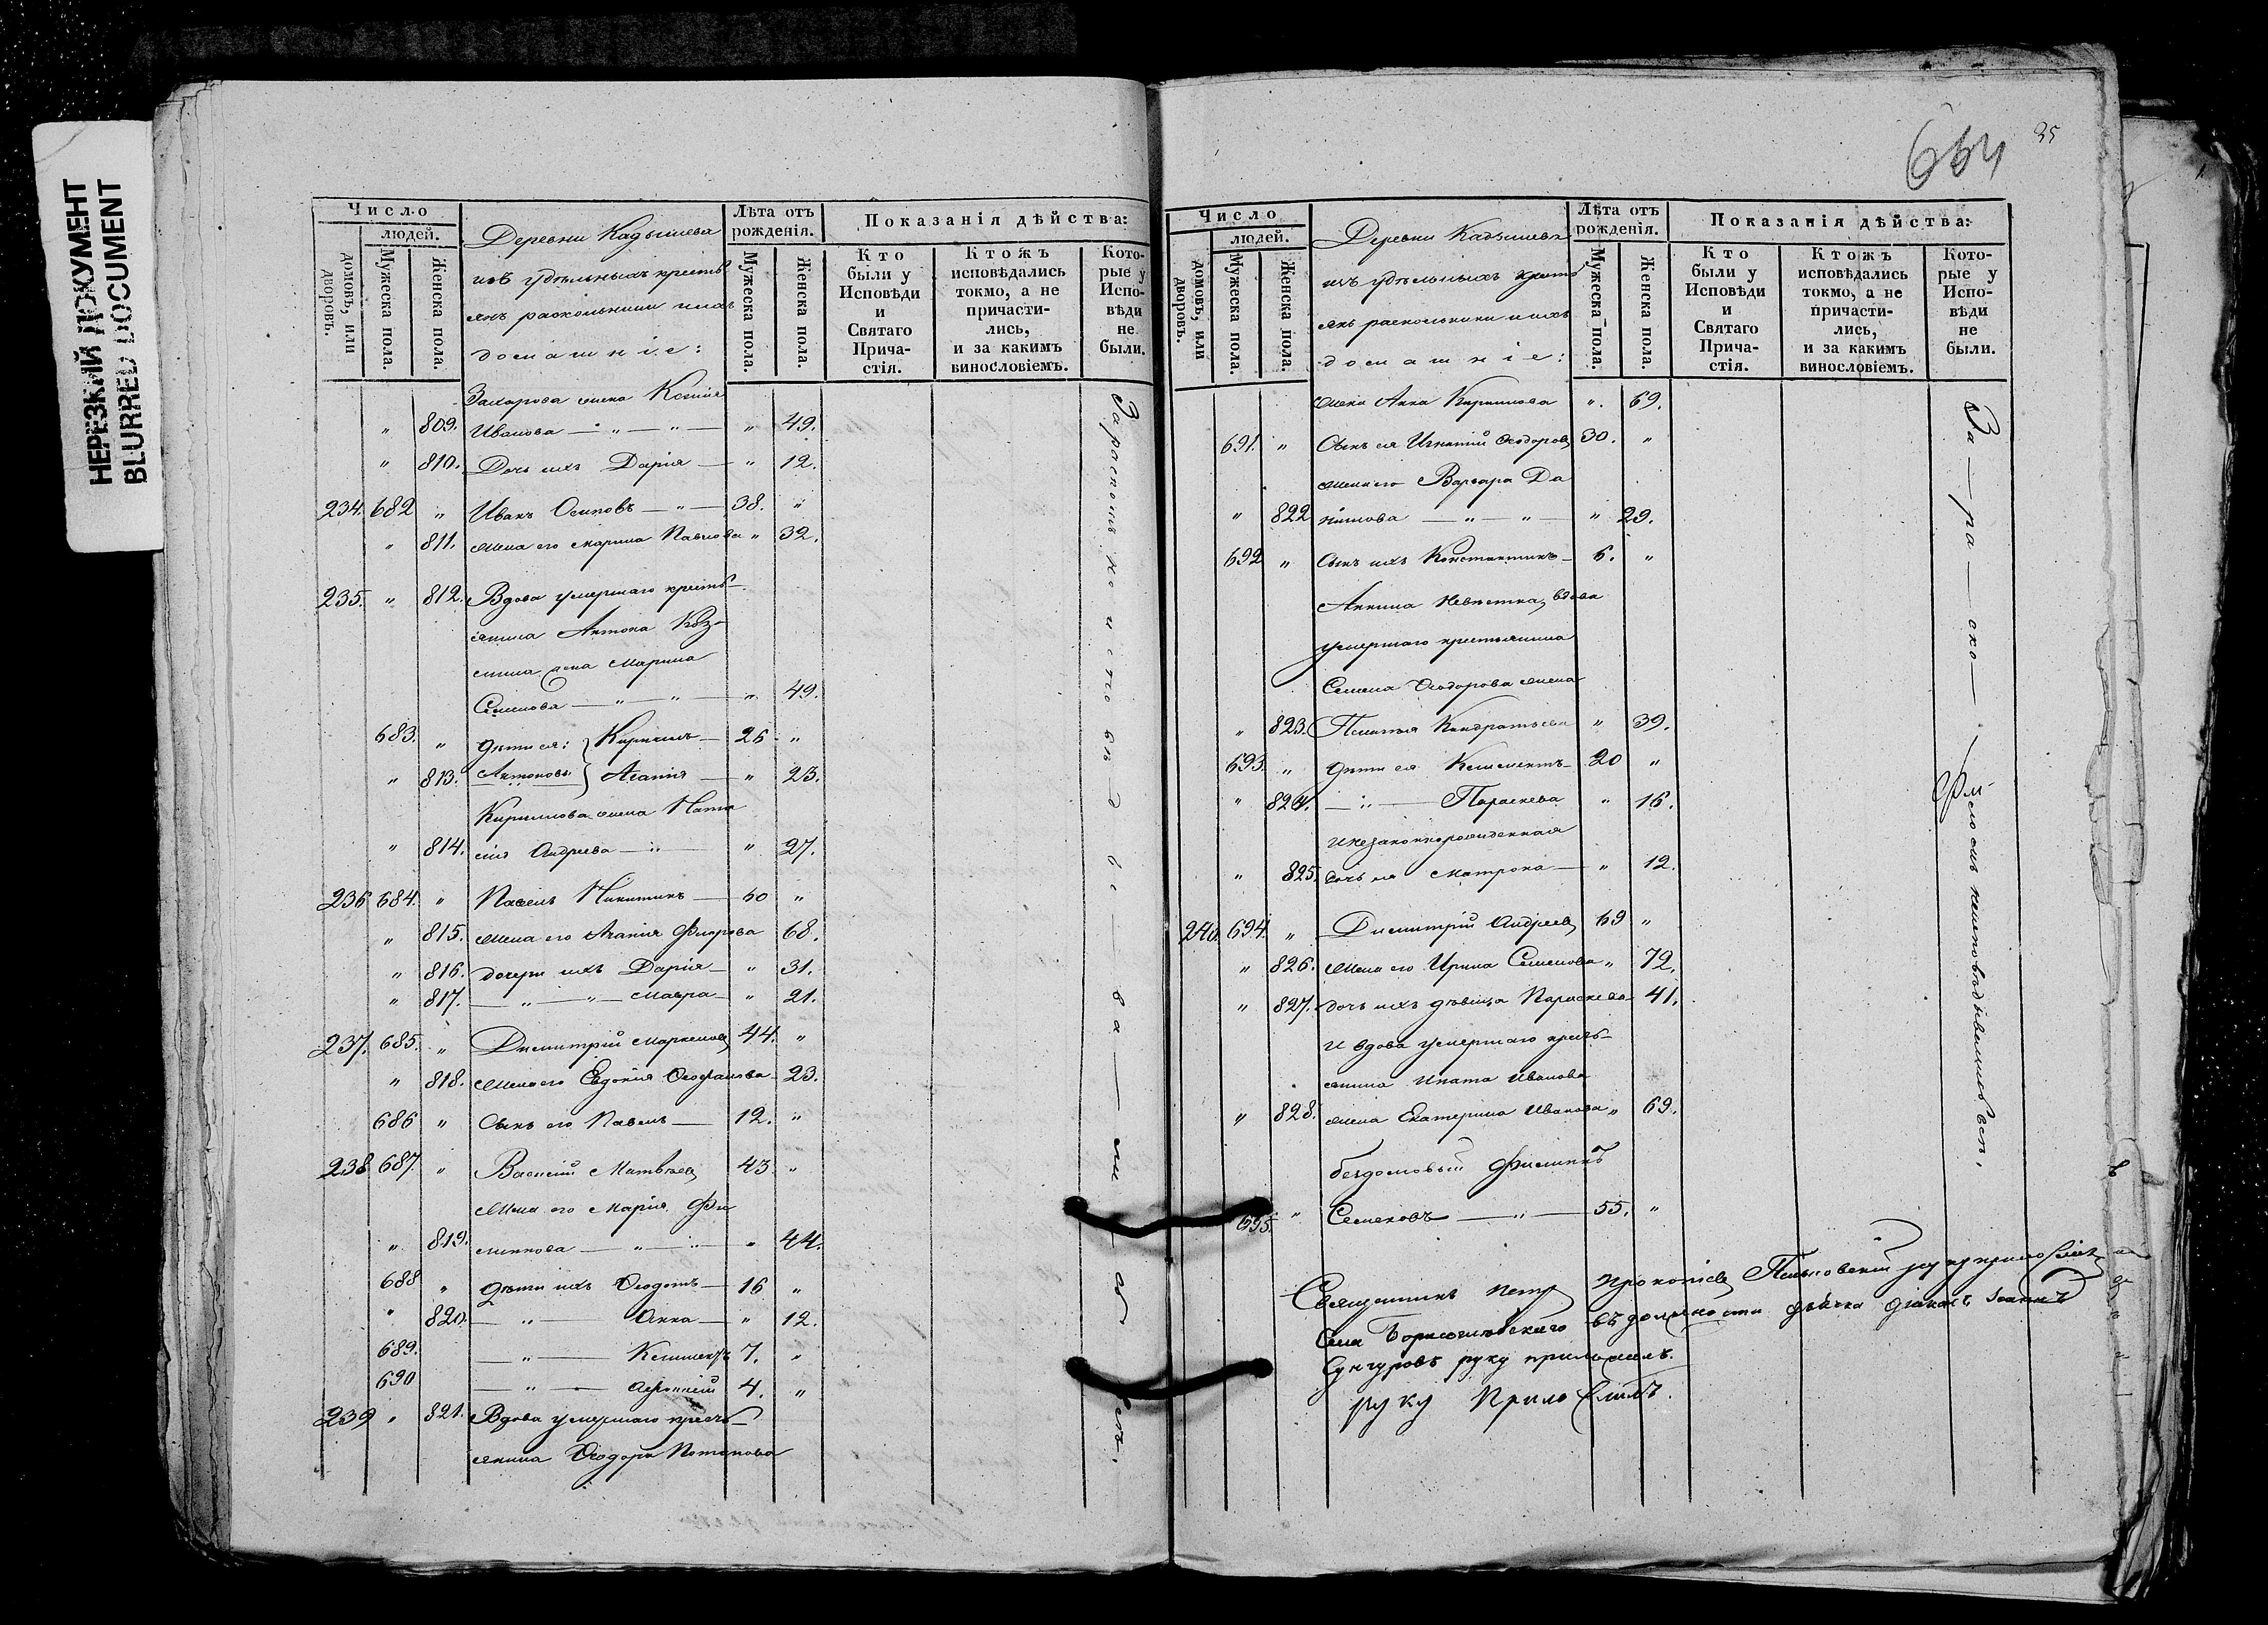 НЕРЕЗКИЙ ДОКУМЕНТ
BLURRED DOCUMENT
Число
людей.
домовъ, или дворовъ.
Мужеска пола.
Женска пола.
Деревни Кадышева
изъ удѣльныхъ кресть
янъ раскольники и ихъ
домашніе:
Лѣта отъ рожденія.
Мужеска пола.
Женска пола.
Показанія дѣйства:
Кто были у Исповѣди и Святаго Прича-стія.
Ктожъ исповѣдались токмо, а не причасти-лись, и за какимъ винословіемъ.
Кото-рые у Испо-вѣди не были.
Захарова жена Ксенія
" 809. Иванова — " — " — " 49.
" 810. Дочь ихъ Дарія — " 12.
234. 682 " Иванъ Осиповъ — " — 38. "
" 811. жена его Марина Павлова " 32.
235. " 812. Вдова умершаго кресть-
янина Антона Коз-
мина жена Марина
Семенова — " — " — " 49.
683. " Дѣти ея: Кириллъ — 26 "
" 813. Антоновы Агапія — " 23.
Кириллова жена Ната
" 814. лія Андреева — " — " 27.
236 684. " Павелъ Никитинъ — 60 "
" 815. жена его Агапія Флорова 68.
" 816. дочери ихъ Дарія — " 31.
" 817. — " — " — Мавра — " 21.
237. 685. " Димитрій Маркеловъ 44. "
" 818. жена его Евдокія 23.
686 " Сынъ его Павелъ — 12. "
238 687. " Василій Матвѣевъ 43. "
Жена его Марія Фи
" 819. липпова — " — " — " 44.
688 " Дѣти ихъ Ѳедотъ — 16 "
" 820. — " — Анна — " 12.
689. — " — Климентъ 7. "
690 — " — 4. "
239 " 821. Вдова умершаго кресть-
янина Ѳеодора Потапова
За расколъ
664
35
Число
людей.
домовъ, или дворовъ.
Мужеска пола.
Женска пола.
Деревни Кадышева
изъ удѣльныхъ кресть
янъ раскольники и ихъ
домашніе:
Лѣта отъ рожденія.
Мужеска пола.
Женска пола.
Показанія дѣйства:
Кто были у Исповѣди и Святаго Прича-стія.
Ктожъ исповѣдались токмо, а не причасти-лись, и за какимъ винословіемъ.
Кото-рые у Испо-вѣди не были.
жена Анна Кириллова ". 69.
691. " Сынъ ея Игнатій Ѳеодоровъ 30. "
жена его Варвара Да
" 822 ниилова — " — " — " 29.
692 " Сынъ ихъ Константинъ — 6. "
Аннина невѣстка, вдова
умершаго крестьянина
Семена Ѳеодорова жена
" 823. Кондратьева " 39.
693. " Дѣти ея Климентъ — 20 "
" 824. — " — Параскева " 16.
и незаконнорожденная
" 825. дочь ея Матрона — " 12.
240. 694. " Димитрій Андреевъ 69 "
" 826. жена его Ирина Семенова " 72.
" 827. дочь ихъ дѣвица Параскева 41.
и вдова умершаго кресть-
янина Ипата Иванова
" 828. жена Екатерина Иванова " 69.
бездомовый Филиппъ
695. " Семеновъ — " — 55. "
За — ра — ско —
Священникъ Петръ Прокопіевъ руку приложилъ
Села въ должности дьячка діаконъ Іоаннъ
Сунгуровъ руку приложилъ.
руку приложилъ.